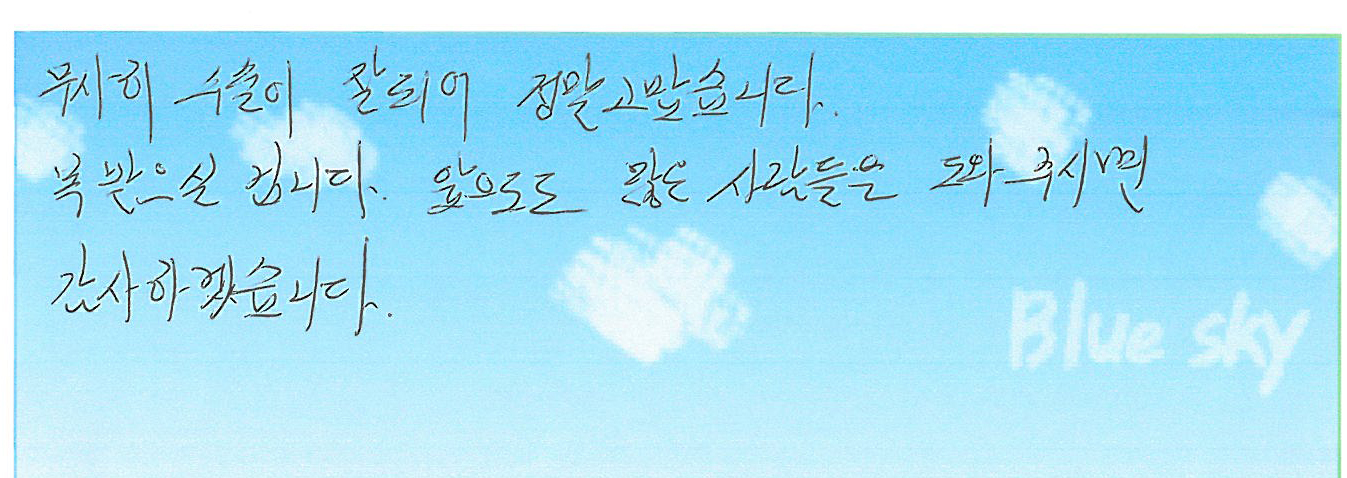 무사히 수술이 잘되어 정말고맙습니다.
복 받으실 겁니다. 앞으로도 많은 사람들을 도와 주시면
감사하겠습니다.
Blue sky